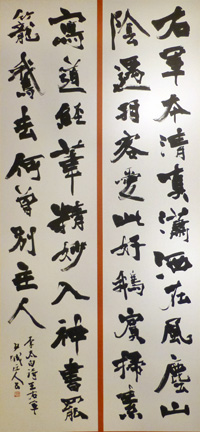 右軍本清真瀟洒在風塵山
陰遇羽客愛此好鵝賓掃素
寫道經筆精妙入神書罷
籠鵝去何曾別主人
李太白詩王右軍